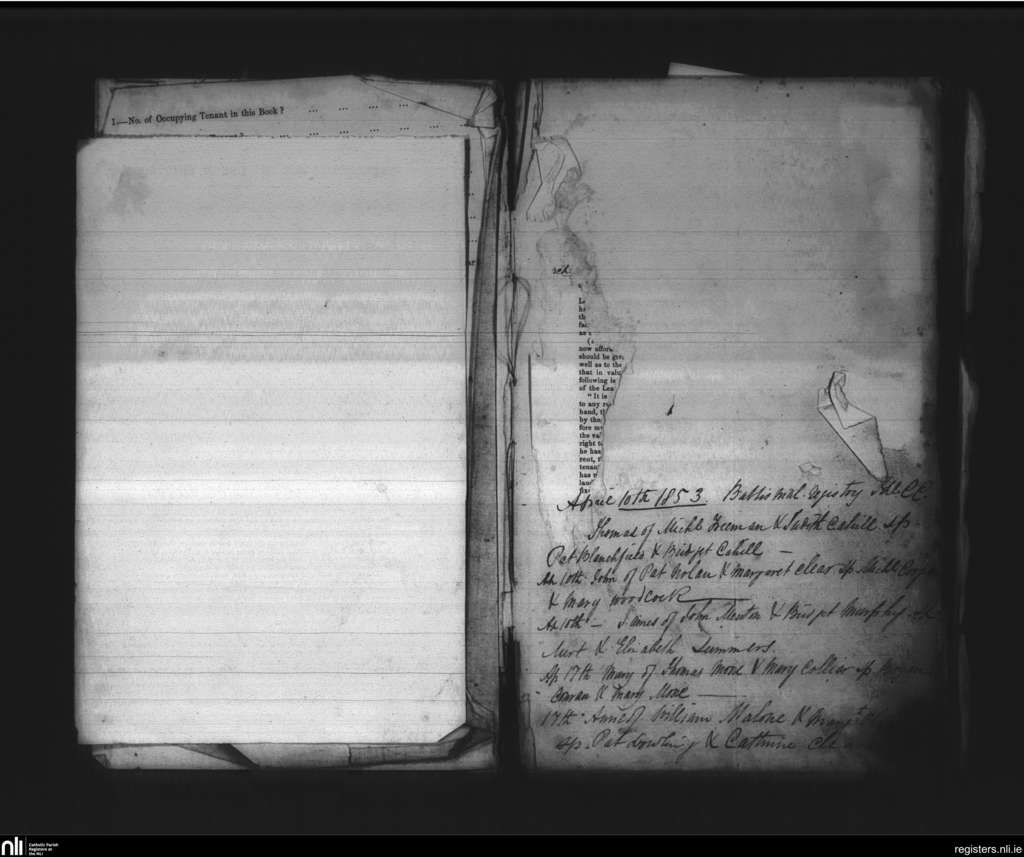 1.—No. of Occupying Tenant in this Book? ... ... ... ...
red
L
he
th
fai
as
(
now affor
should be gre
well as to the
that in valu
following is
of the Lea
"It is
to any r
hand, t
by the
fore m
the va
right t
he has
rent, f
tenan
has r
lan
fix
April 10th 1853. Babtismal registry CC.
Thomas of Michl Freeman & Judith Cahill sp.
Pat Blanchfield & Bridget Cahill —
Ap 10th John of Pat Nolan & Margaret Clear sp Michl
& Mary Woodcock
Ap 10th — James of John & Bridget Murphy
Curt & Elizabeth Summers.
Ap 17th Mary of Thomas Mone & Mary Collier sp
Conran & Mary Mone —
17th Anne of William Malone &
sp. Pat Dowling & Catherine
nli
Catholic Parish
Registers at
the NLI
registers.nli.ie